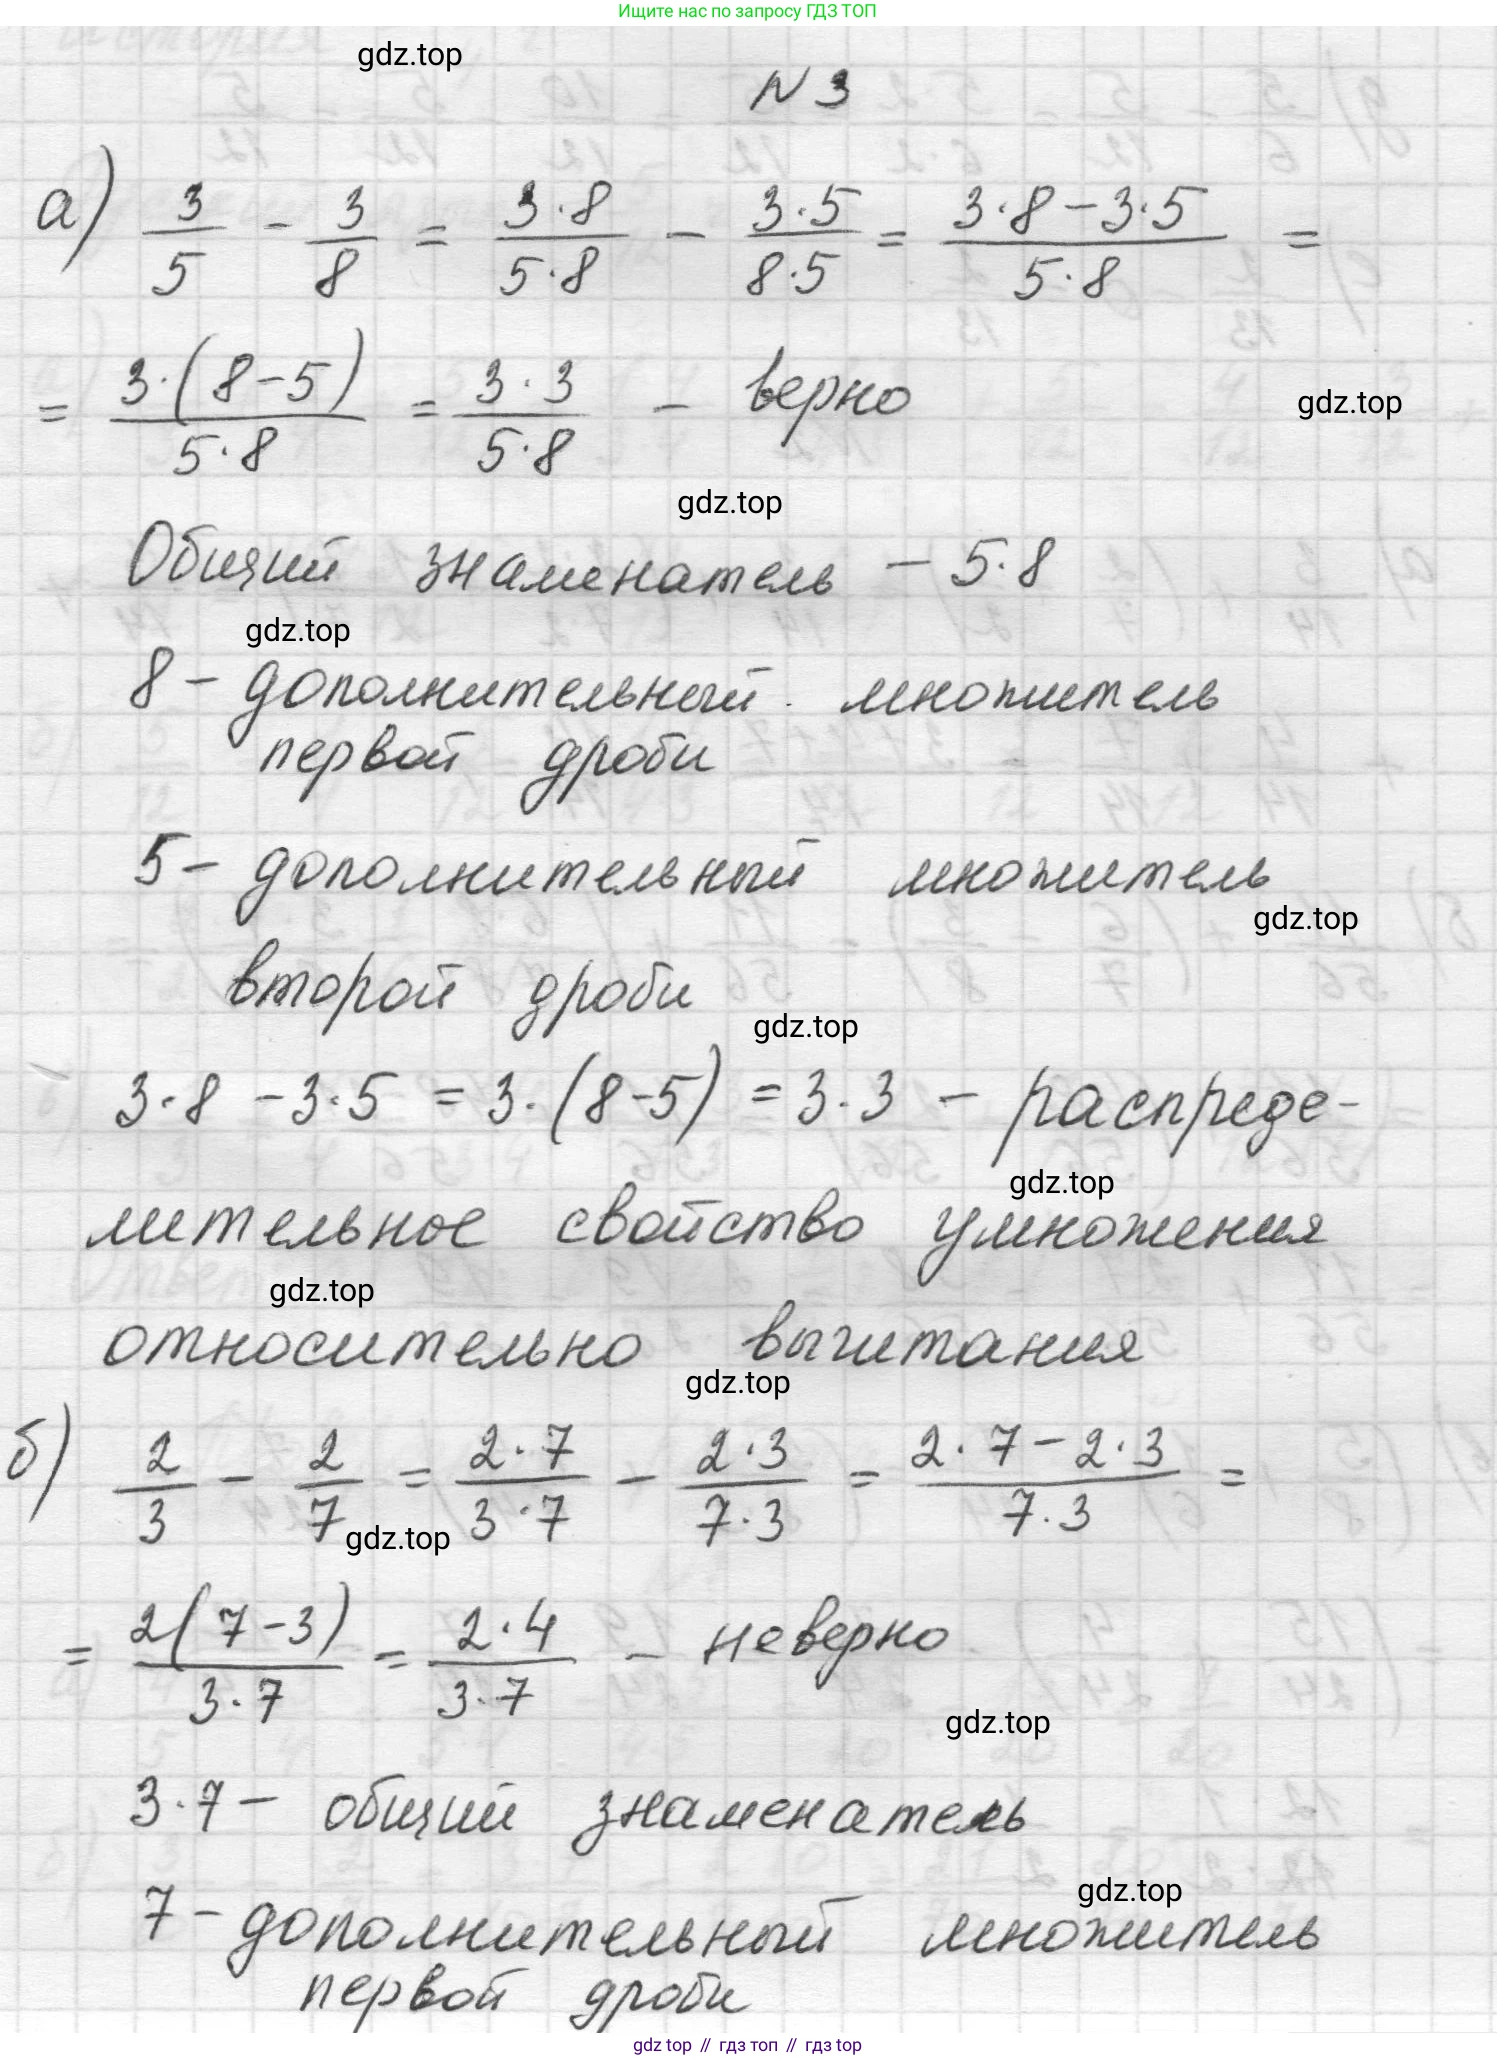 Ищите нас по запросу ГДЗ ТОП
gdz.top
N 3
а) 3/5 - 3/8 = 3·8/5·8 - 3·5/8·5 = 3·8-3·5/5·8 =
= 3·(8-5)/5·8 = 3·3/5·8 - верно
gdz.top
gdz.top
Общий знаменатель - 5·8
gdz.top
8 - дополнительный множитель
первой дроби
5 - дополнительный множитель
gdz.top
второй дроби
gdz.top
3·8 - 3·5 = 3·(8-5) = 3·3 - распреде-
gdz.top
лительное свойство умножения
gdz.top
относительно вычитания
gdz.top
б) 2/3 - 2/7 = 2·7/3·7 - 2·3/7·3 = 2·7-2·3/7·3 =
gdz.top
= 2(7-3)/3·7 = 2·4/3·7 - неверно
gdz.top
3·7 - общий знаменатель
gdz.top
7 - дополнительный множитель
первой дроби
gdz.top // гдз топ // гдз.top